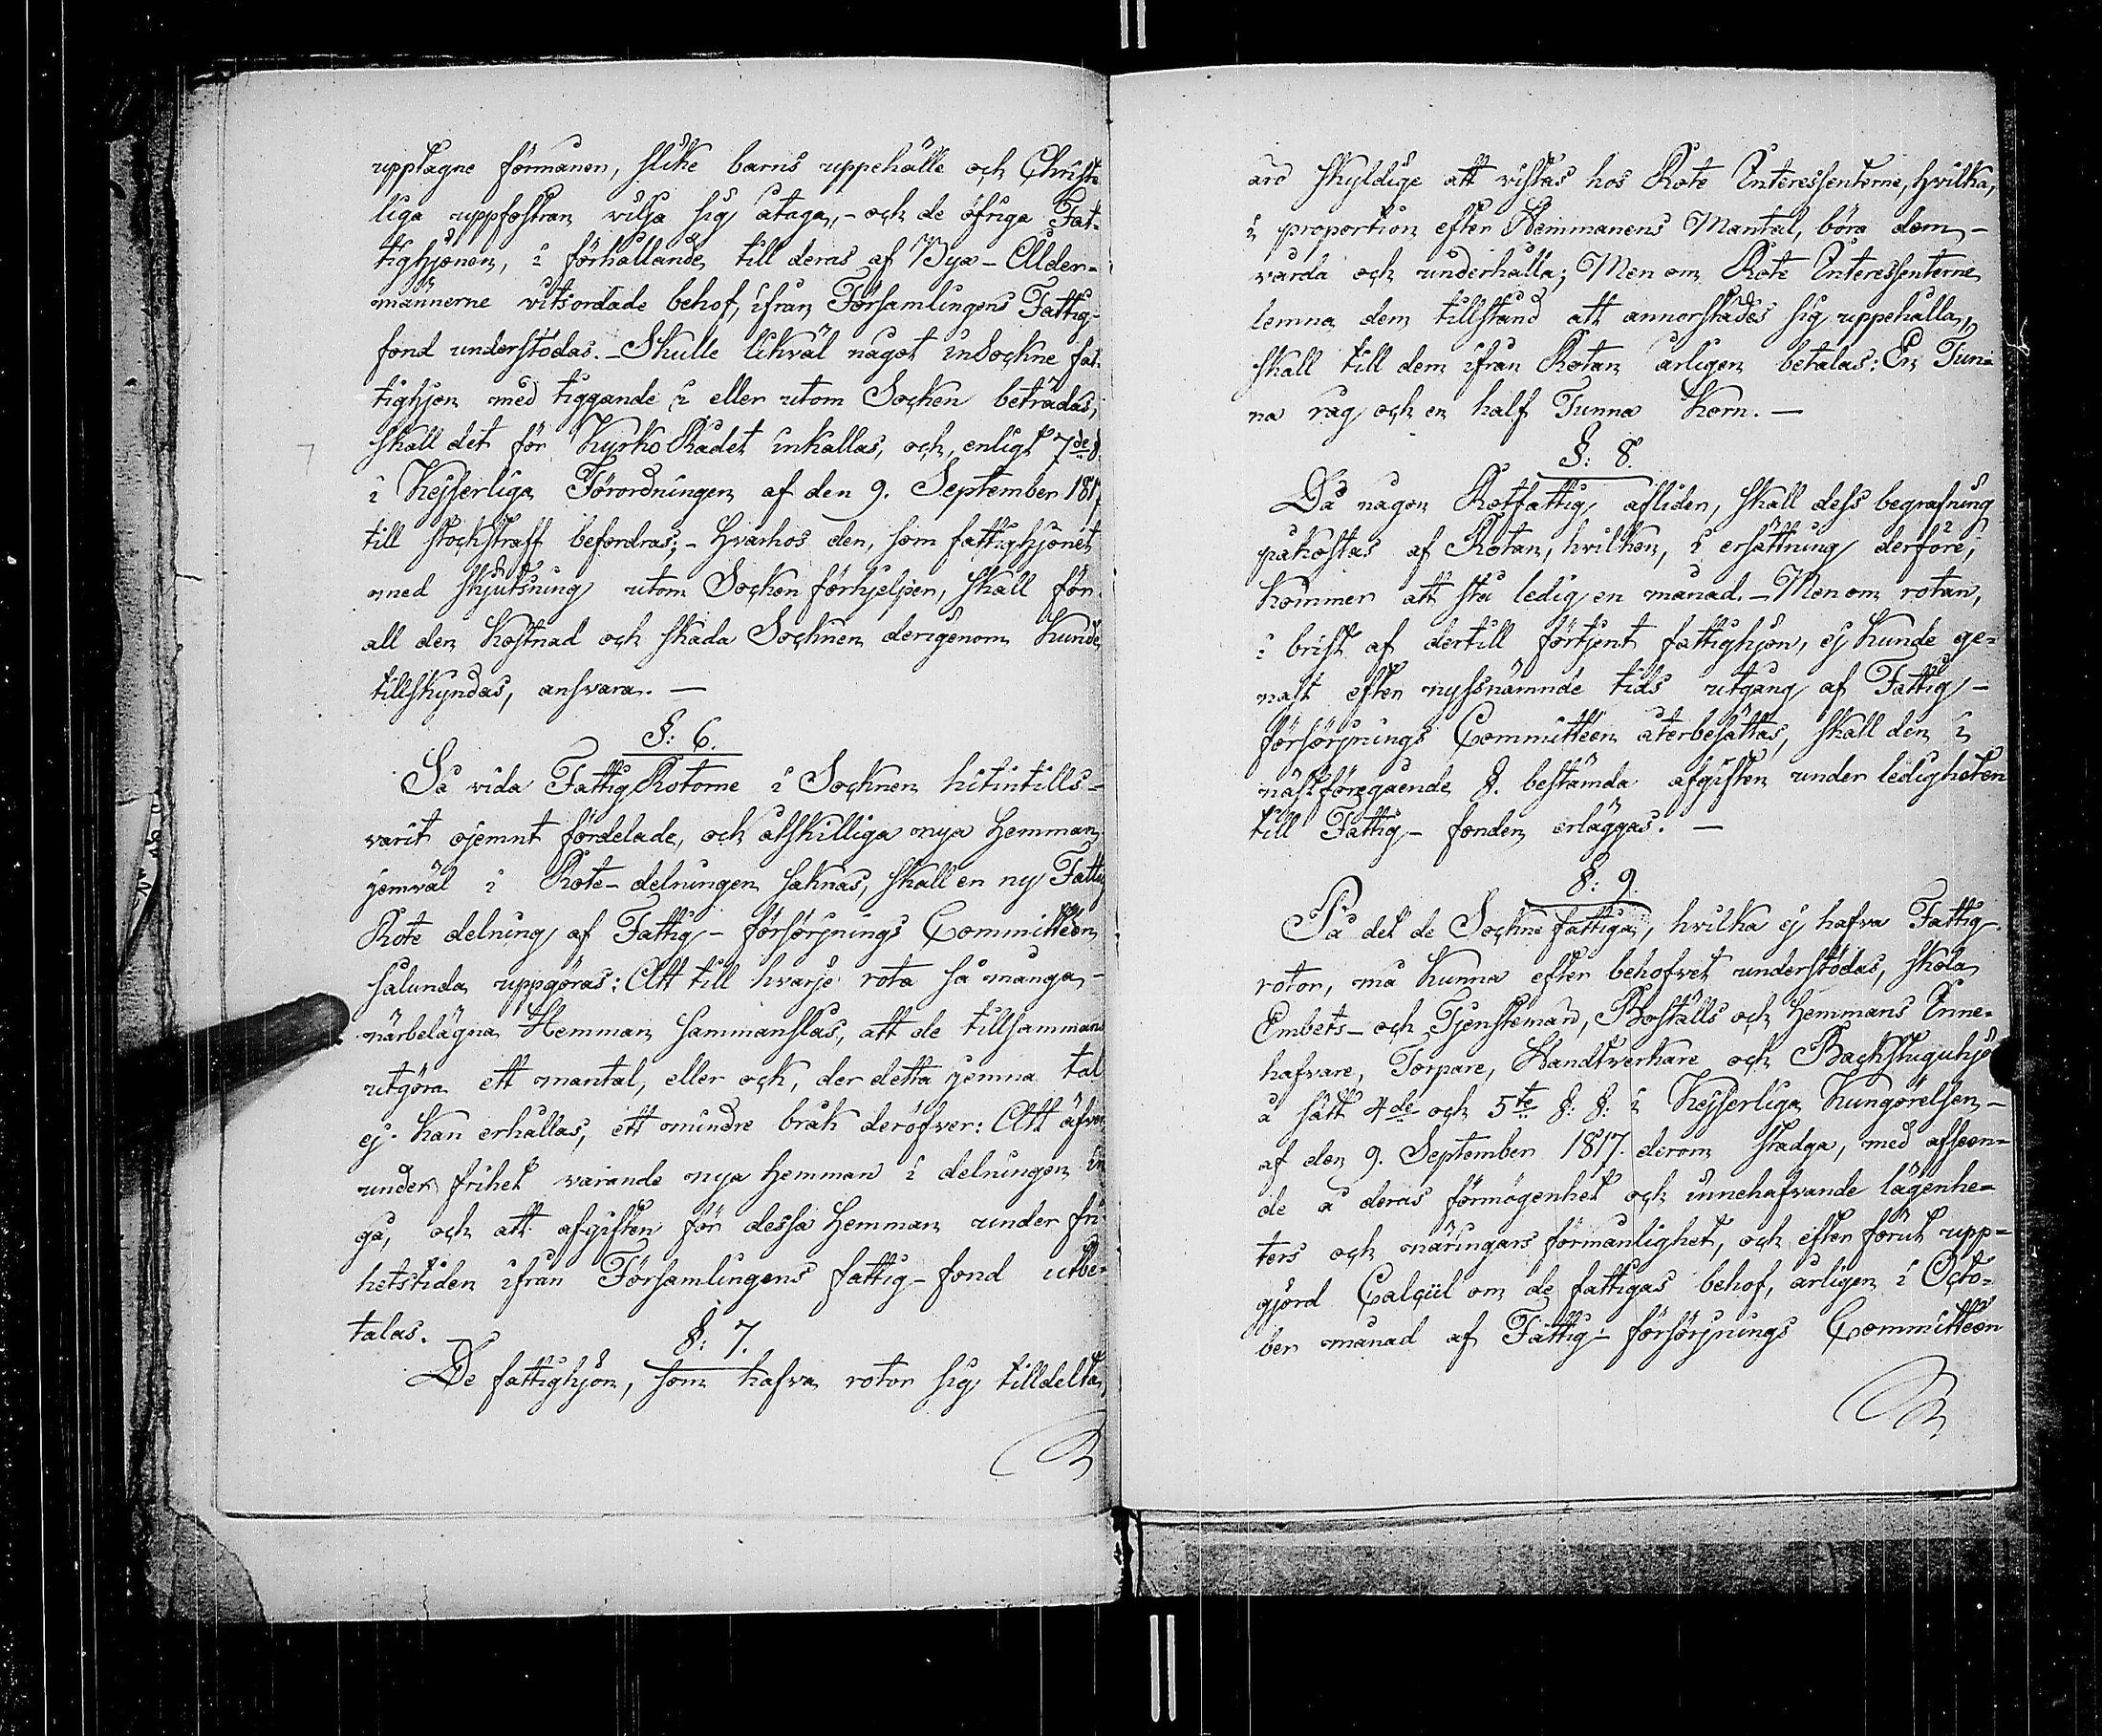 upptagne förmåner, slike barns uppehälle och Christe
liga uppfostran vilja sig åtaga, - och de öfriga Fat-
tighjonen, i förhållande till deras af Bya-Ålder-
männerne vitsordade behof, ifrån Församlingens Fattig-
fond understödas. - Skulle likväl något inSockne fat-
tighjon med tiggande i eller utom Socken beträdas,
skall det för Kyrko Rådet inkallas, och, enligt 7de §.
i Kejserliga Förordningen af den 9. September 1817,
till stockstraff befordras; - Hvarhos den, som fattighjonet
med skjutsning utom Socken förhjelper, skall för
all den kostnad och skada Socknen derigenom kunde
tillskyndas, ansvara. -
§: 6.
Så vida FattigRotorne i Socknen hitintills-
varit ojemnt fördelade, och åtskilliga nya Hemman
jemväl i Rote-delningen saknas, skall en ny Fattig
Rote delning af Fattig-försörjnings Committéen
sålunda uppgöras: Att till hvarje rota så många-
närbelägna Hemman sammanslås, att de tillsammans
utgöra ett mantal, eller ock, der detta jemna tal
ej kan erhållas, ett mindre bråk deröfver: Att äfven
under frihet varande nya Hemman i delningen in
gå, och att afgiften för dessa Hemman under fri-
hetstiden ifrån Församlingens fattig-fond utbe-
talas.
§: 7.
De fattighjon, som hafva rotor sig tilldelta,
äro skyldige att vistas hos Rote Interessenterne, hvilka,
i proportion efter Hemmanens Mantal, böra dem-
vårda och underhålla; Men om Rote Interessenterne
lemna dem tillstånd att annorstädes sig uppehålla,
skall till dem ifrån Rotan årligen betalas: En Tun-
na råg och en half Tunna Korn. -
§: 8.
Då någon Rotfattig afliden, skall dess begrafning
påkostas af Rotan, hvilken, i ersättning derföre,
kommer att stå ledig en månad. - Men om rotan,
i brist af dertill förtjent fattighjon, ej kunde ge-
nast efter nyssnämnde tids utgång af Fattig-
försörjnings Committéen återbesättas, skall den i
nästföregående §. bestämda afgiften under ledigheten
till Fattig-fonden erläggas. -
§: 9.
På det de Sockne fattiga, hvilka ej hafva Fattig-
rotor, må kunna efter behofvet understödas, skola
Embets- och Tjensteman, Boställs och Hemmans Inne-
hafvare, Torpare, Handtverkare och Backstuguhjo
å sätt 4de och 5te §: §: i Kejserliga Kungörelsen-
af den 9. September 1817. derom stadga, med afseen-
de å deras förmögenhet och innehafvande lägenhe-
ters och näringars förmånlighet, och efter förut upp-
gjord Calcul om de fattigas behof, årligen i Octo-
ber månad af Fattig-försörjnings Committéen